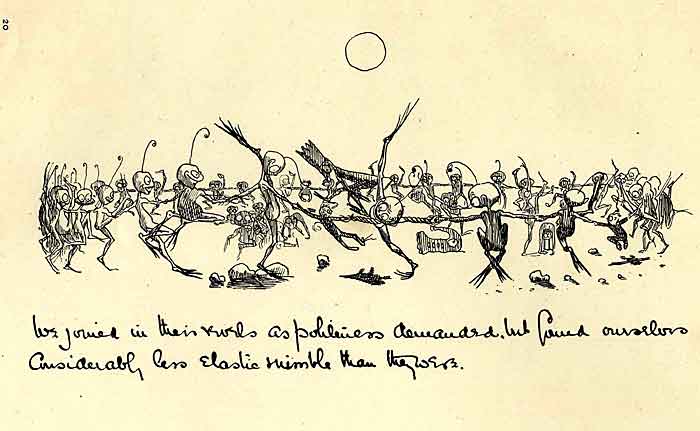 20
We joined in their revels as politeness demanded, but found ourselves
Considerably less elastic & nimble than they were.